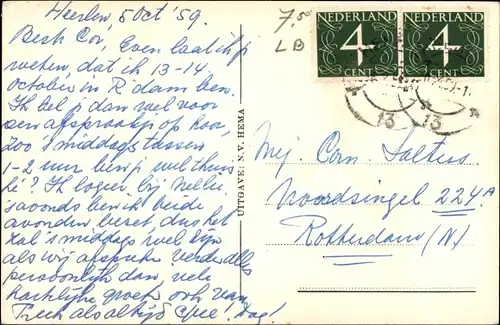 Heerlen, 5 Oct '59.
Beste Cor, Even laat ik je
weten dat ik 13-14
October in R'dam ben.
Ik bel je dan wel voor
een afspraakje op hoor,
zoo 's middags tussen
1-2 uur ben je wel thuis
hé? Ik logeer bij Nellie.
's avonds ben ik beide
avonden bezet, dus het
zal 's middags wel zijn
als wij afspreken. Verder alles
persoonlijk dan, vele
hartelijke groeten ook van
Truck als altijd Cilie! Dag!
7,50
LB
NEDERLAND
4
CENT
NEDERLAND
4
CENT
13
13
UITGAVE: N.V. HEMA
Mej. Corn. Saltus.
Noordsingel 224A
Rotterdam (N.)